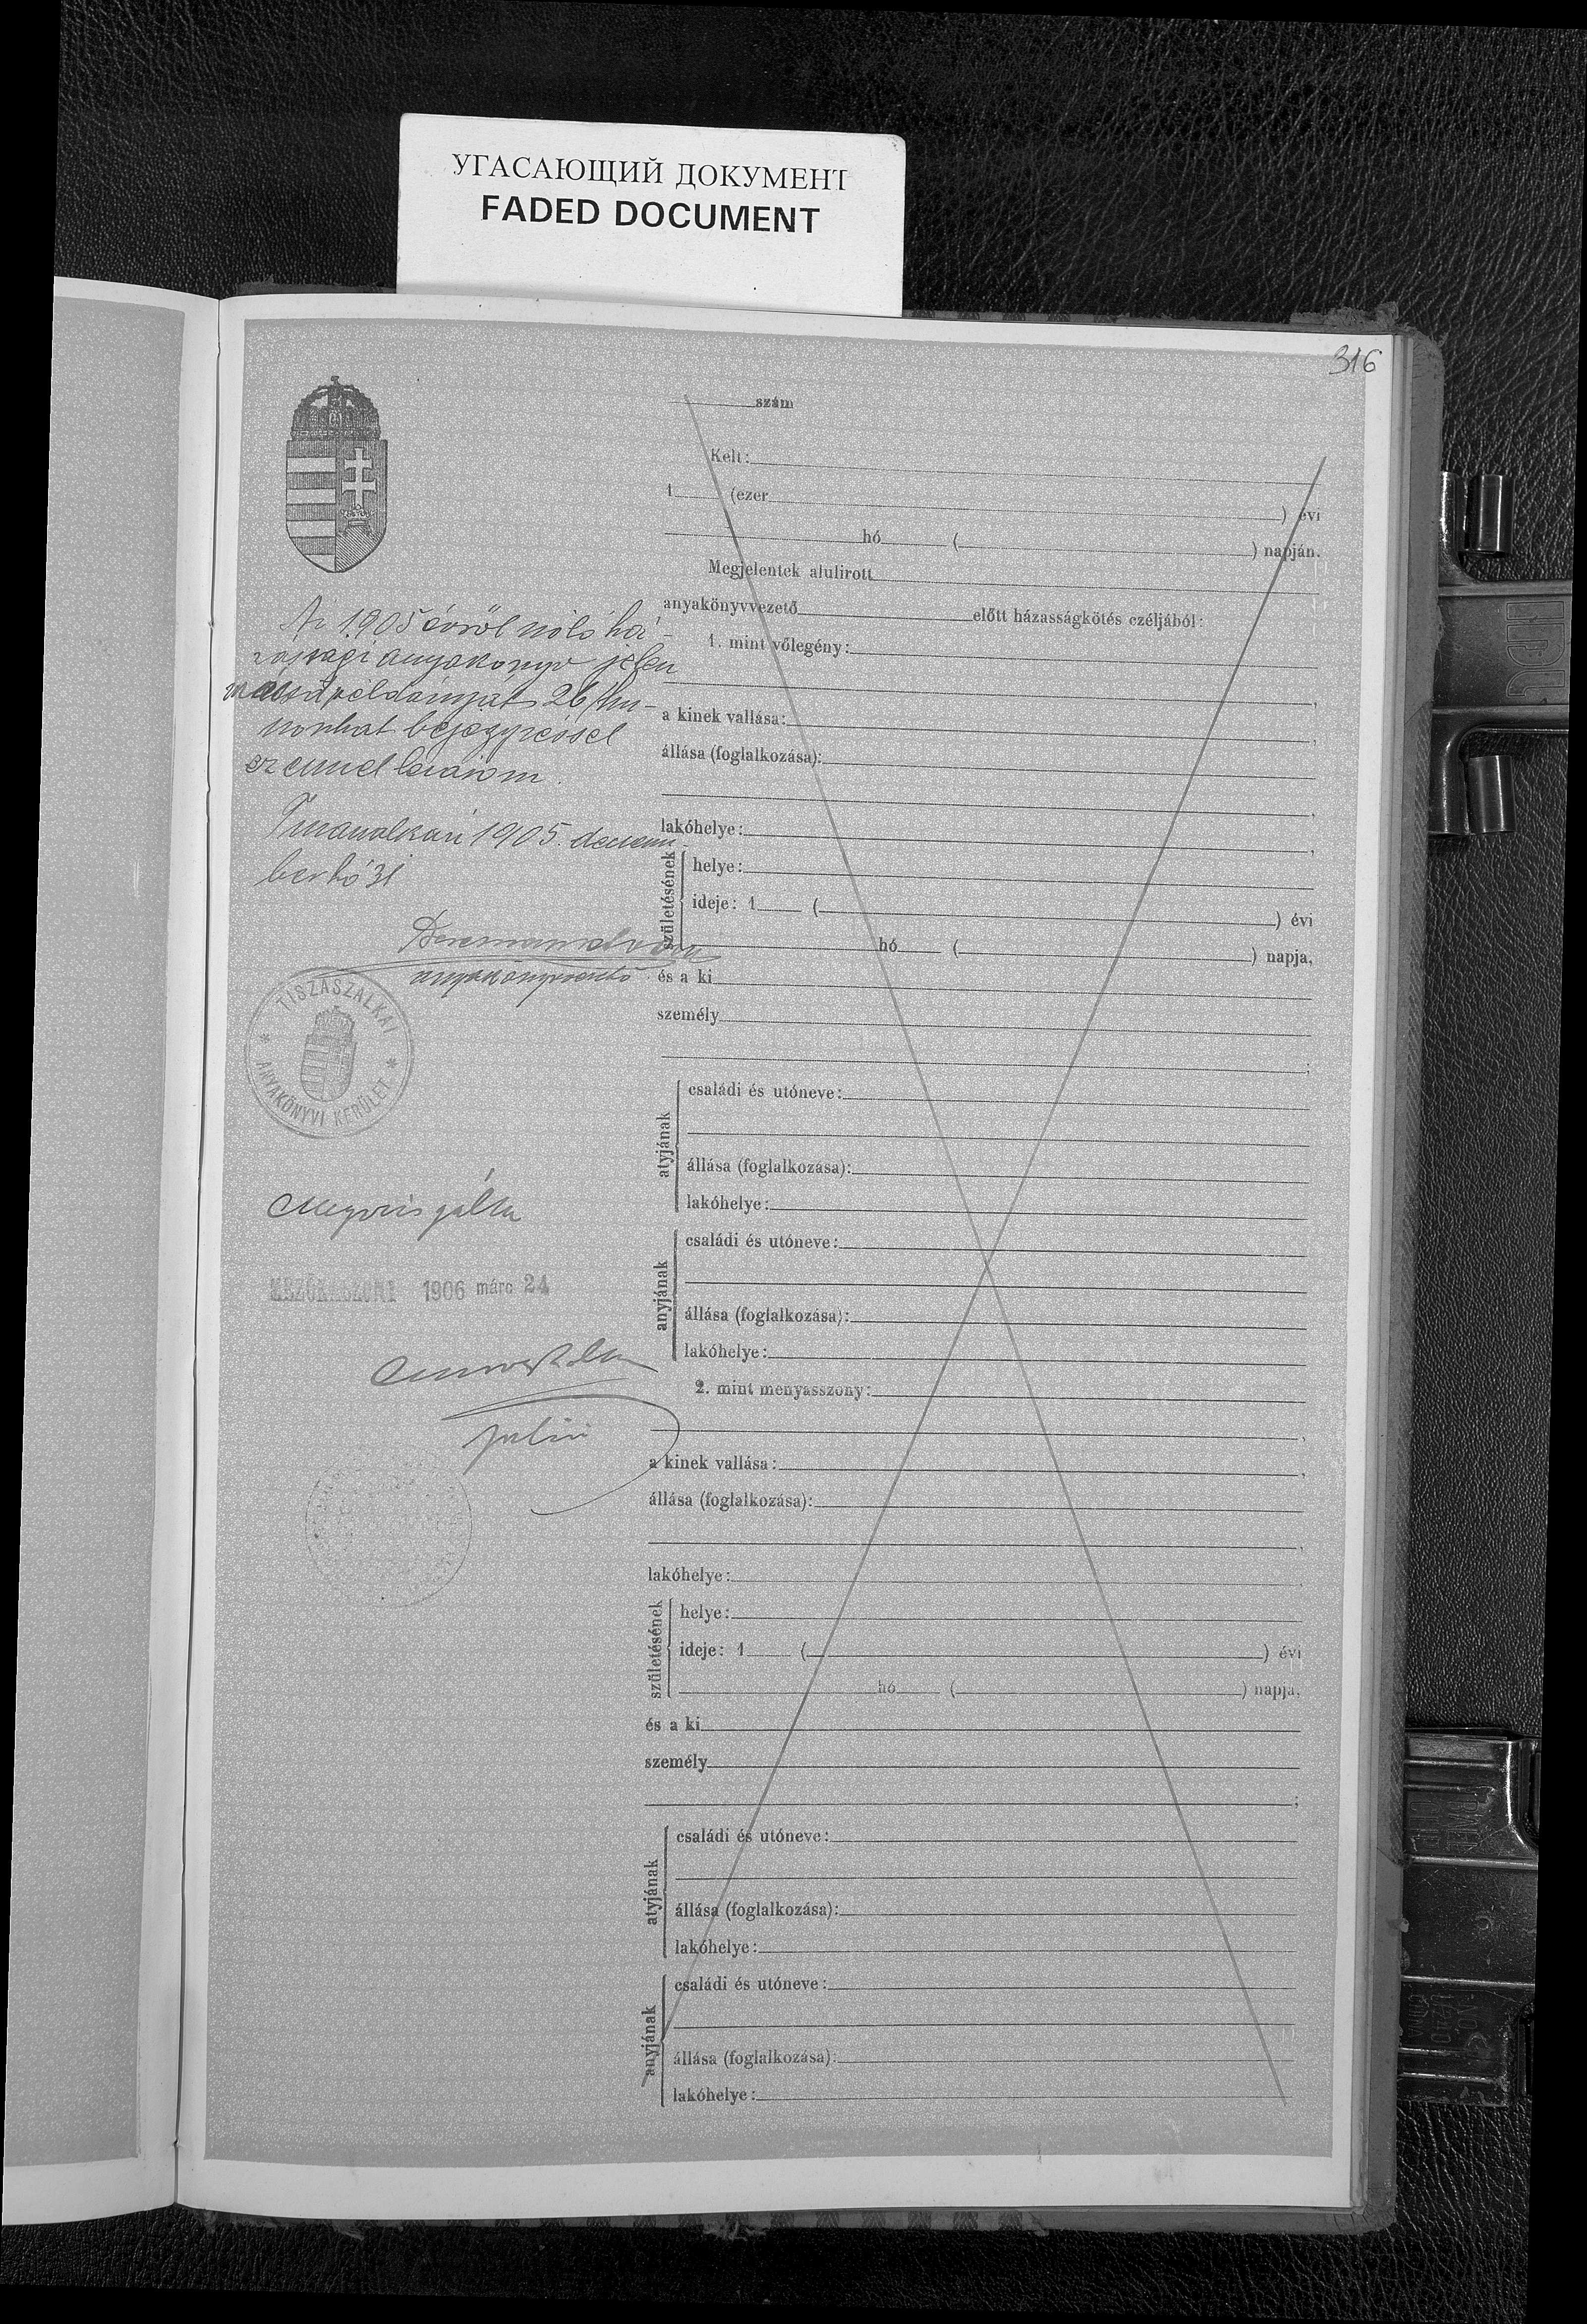 УГАСАЮЩИЙ ДОКУМЕНТ
FADED DOCUMENT
316
szám
Kelt:
1 (ezer ) évi
hó ( ) napján.
Megjelentek alulirott
anyakönyvvezető előtt házasságkötés czéljából:
1. mint vőlegény:
a kinek vallása:
állása (foglalkozása):
lakóhelye:
születésének
helye:
ideje: 1 ( ) évi
hó ( ) napja,
és a ki
személy
atyjának
családi és utóneve:
állása (foglalkozása):
lakóhelye:
anyjának
családi és utóneve:
állása (foglalkozása):
lakóhelye:
2. mint menyasszony:
a kinek vallása:
állása (foglalkozása):
lakóhelye:
születésének
helye:
ideje: 1 ( ) évi
hó ( ) napja,
és a ki
személy
atyjának
családi és utóneve:
állása (foglalkozása):
lakóhelye:
anyjának
családi és utóneve:
állása (foglalkozása):
lakóhelye:
Az 1905 évről szóló há-
zassági anyakönyv jelen
másod példányát 26/hu-
szonhat bejegyzéssel
ezennel lezárom.
Tiszaszalkán 1905. decem-
berhó 31
anyakönyvvezető
TISZASZALKAI
ANYAKÖNYVI KERÜLET
Megvizsgálta
MEZŐKASZONY 1906 márc 24